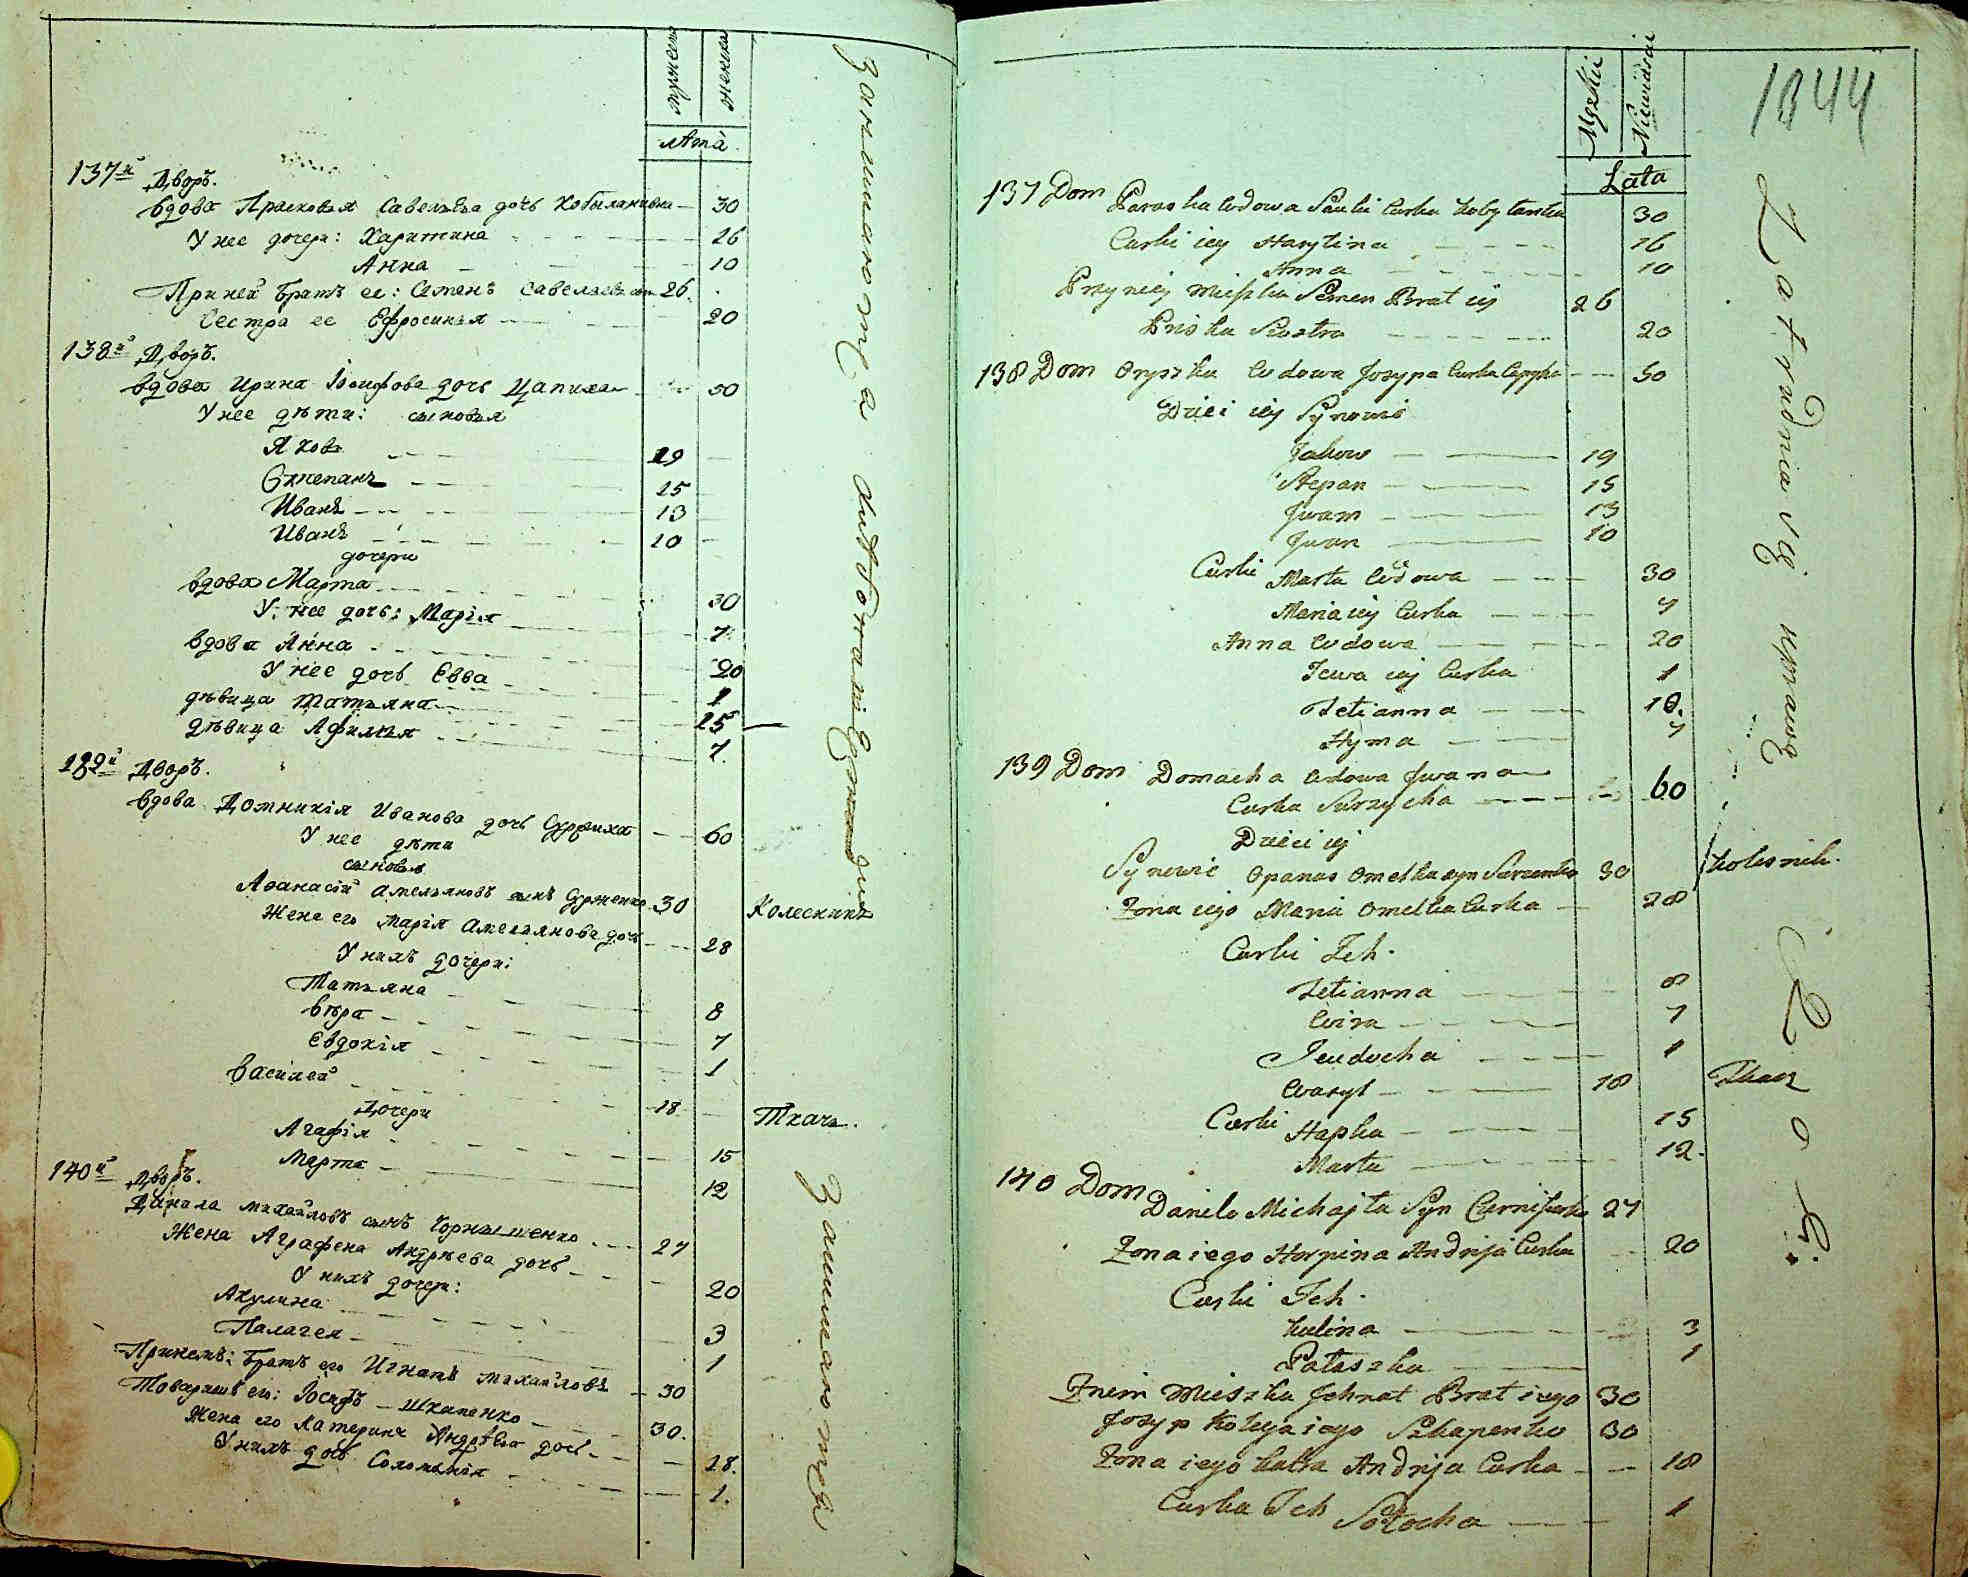 мужеска
женска
лѣта
137й Дворъ.
вдова Прасковья Савельева дочь Кобылянивна 30
У нее дочери: Харитина 16
Анна 10
При ней братъ ее: Семенъ Савельевъ сынъ 26
Сестра ее Ефросинья 20
138й Дворъ.
вдова Ирина Іосифова дочь Цапиха 50
У нее дѣти: сыновья
Яковъ 19
Степанъ 15
Иванъ 13
Иванъ 10
дочери
вдова Марта 30
У нее дочь: Марія 7
вдова Анна 20
У нее дочь Евва 1
дѣвица Татьяна 15
дѣвица Афимья 7.
139й Дворъ.
вдова Домникія Иванова дочь Суржиха 60
У нее дѣти
сыновья
Афанасій Амельяновъ сынъ Сурженко 30 Колесникъ
Жена его Марія Амельянова дочь 28
У нихъ дочери:
Татьяна 8
Вѣра 7
Евдокія 1
Василей 18 Ткачь.
Дочери
Агафія 15
Марта 12
140й Дворъ.
Данила Михайловъ сынъ Чорнышенко 27
Жена Аграфена Андрѣева дочь 20
У нихъ дочери:
Акулина 3
Палагея 1
При немъ: братъ его Игнатъ Михайловъ 30
Товарищъ его: Іосифъ Шкапенко 30.
Жена его Катерина Андрѣева дочь 18.
У нихъ дочь Соломыія 1.
занимаются хлѣбопашествомъ
Занимаются
1844
Męzkii
Niewidscii
Lata
137 Dom Paraska Wdowa Sauki Curka Kobylanka 30
Curki iey Harytina 16
Anna 10
Przy niey Mieszka Semen Brat iey 26
Priska Siostra 20
138 Dom Oryszka Wdowa Josypa Curka Capyha 50
Dzieci iey Synowie
Jakow 19
Stepan 15
Jwan 13
Jwan 10
Curki Marta Wdowa 30
Maria iey Curka 7
Anna Wdowa 20
Jewa iey Curka 1
Tetianna 10.
Hyma 7
139 Dom Domacha Wdowa Jwana 60
Curka Surzycha
Dzieci iey
Synowie Opanas Omelka syn Surzenko 30 Kolesnik.
Zona iego Maria Omelka Curka 28
Curki Ich.
Tetianna 8
Wira 7
Jeudocha 1
Wasyl 18 Tkacz
Curki Hapka 15
Marta 12.
140 Dom
Danilo Michajła Syn Czerniszenko 27
Zona iego Horpina Andrija Curka 20
Curki Ich.
Kulina 3
Palaszka 1
Znim Mieszka Jehnat Brat iego 30
Josyp Kolega iego Szkapenko 30
Zona iego Katra Andrija Curka 18
Curka Ich Sołocha 1
Zatrudnia się uprawą Roli.